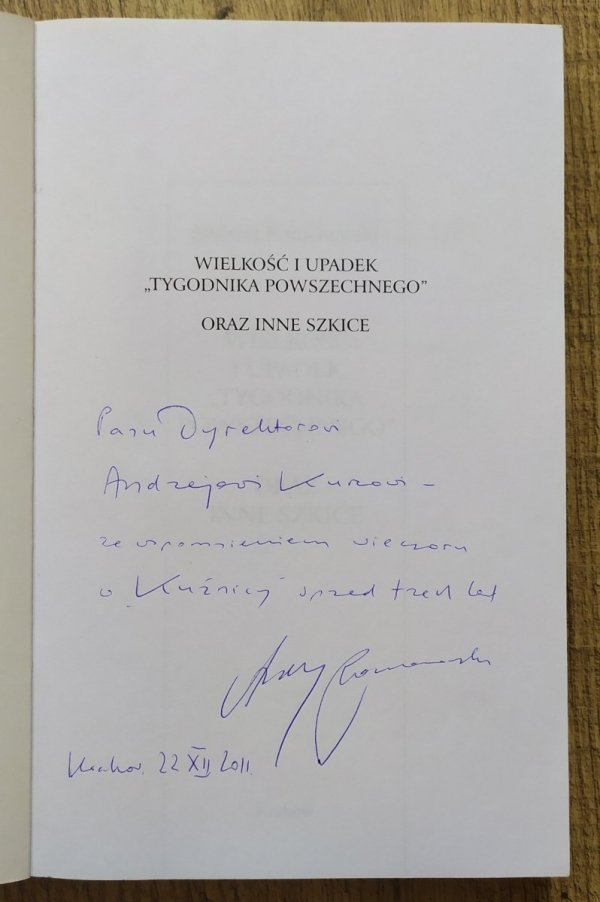 WIELKOŚĆ I UPADEK
„TYGODNIKA POWSZECHNEGO”
ORAZ INNE SZKICE
Panu Dyrektorowi
Andrzejowi Kurzowi –
ze wspomnieniem wieczoru
w „Kuźnicy” sprzed trzech lat
Andrzej Romanowski
Kraków, 22 XII 2011.